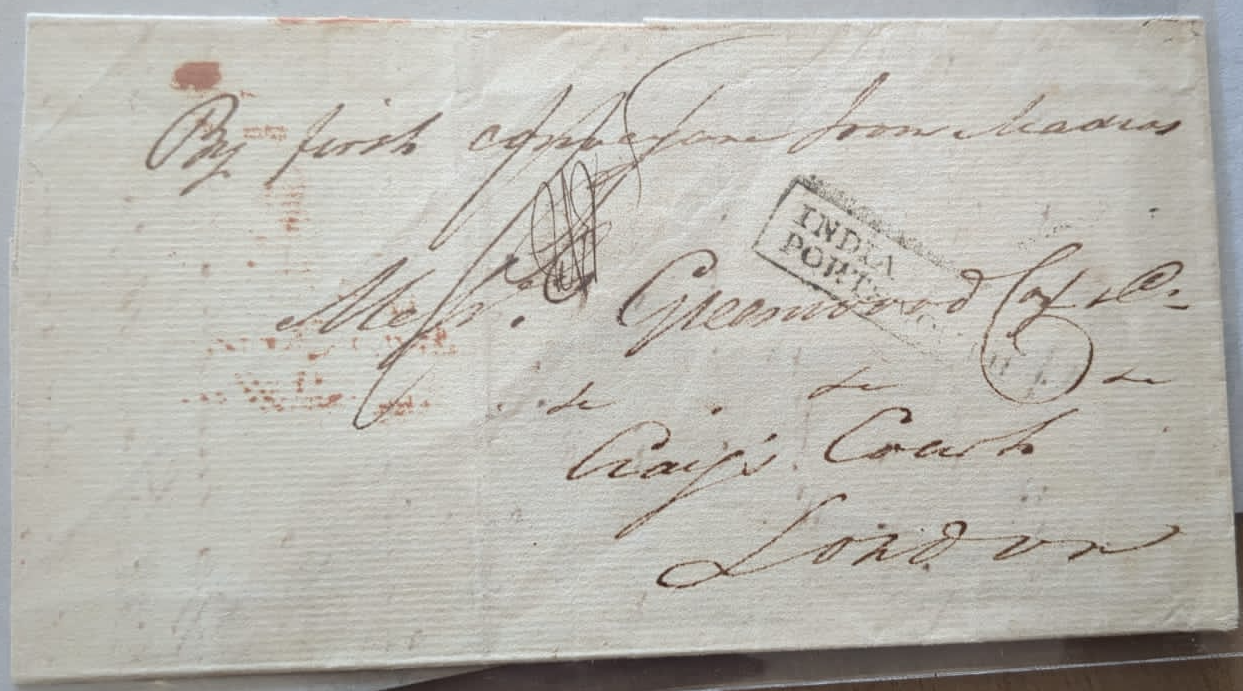 By first conveyance from Madras
INDIA
PORT
Messrs. Greenwood Cox & Co
&c &c &c
Craig's Court
London